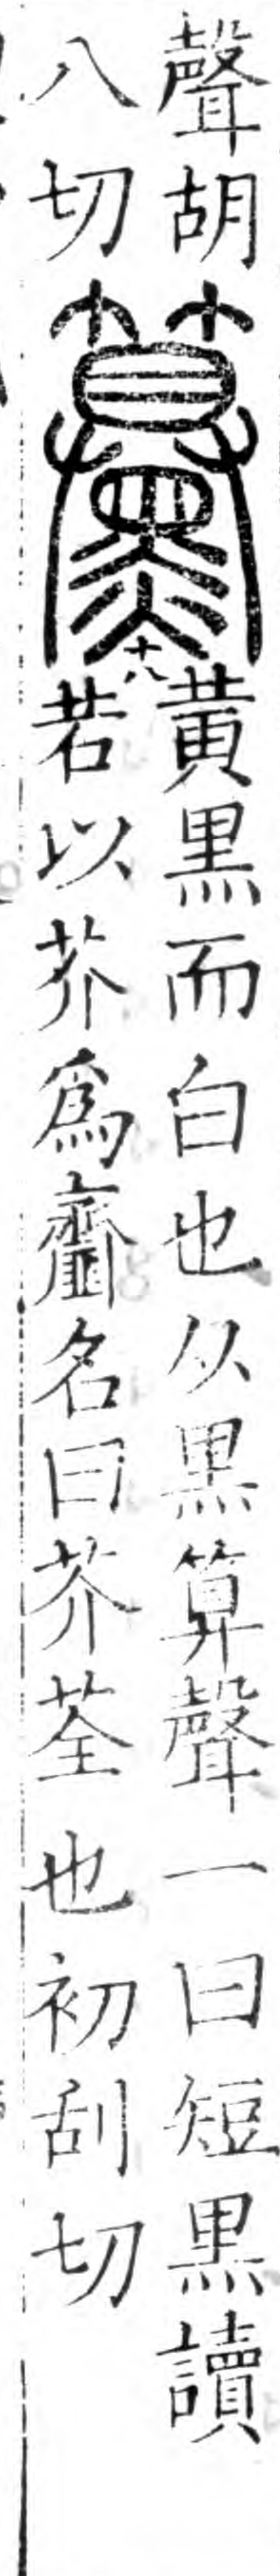 聲胡
八切
十八
黃黑而白也从黑算聲一曰短黑讀
若以芥爲齏名曰芥荃也初刮切